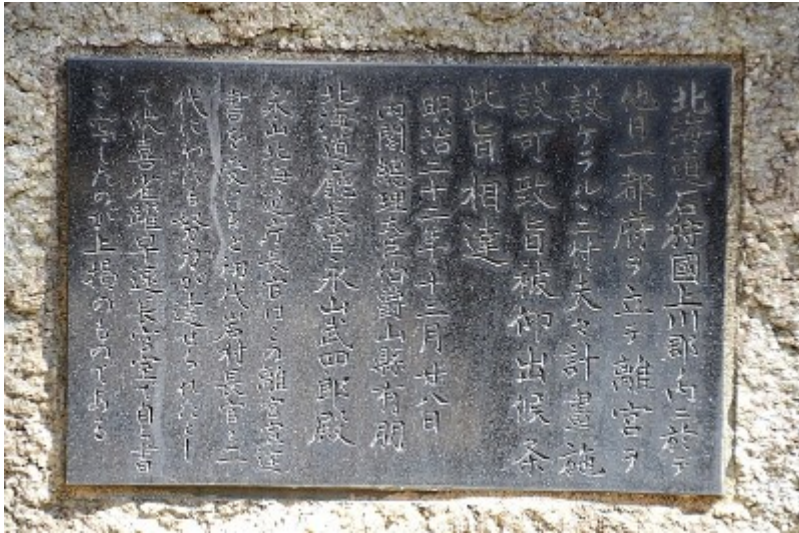 北海道石狩國上川郡ノ内ニ於テ
他日一都府ヲ立テ離宮ヲ
設ケラルヽニ付夫々計畫施
設可致旨被仰出候条
此旨相達
明治二十二年十二月廿八日
内閣總理大臣伯爵山縣有朋
北海道廳長官永山武四郎殿
永山北海道庁長官はこの離宮宣達
書を受けると初代岩村長官と二
代にわたる努力が達せられたとし
て欣喜雀躍早速長官室で自ら書
き写したのが上掲のものである